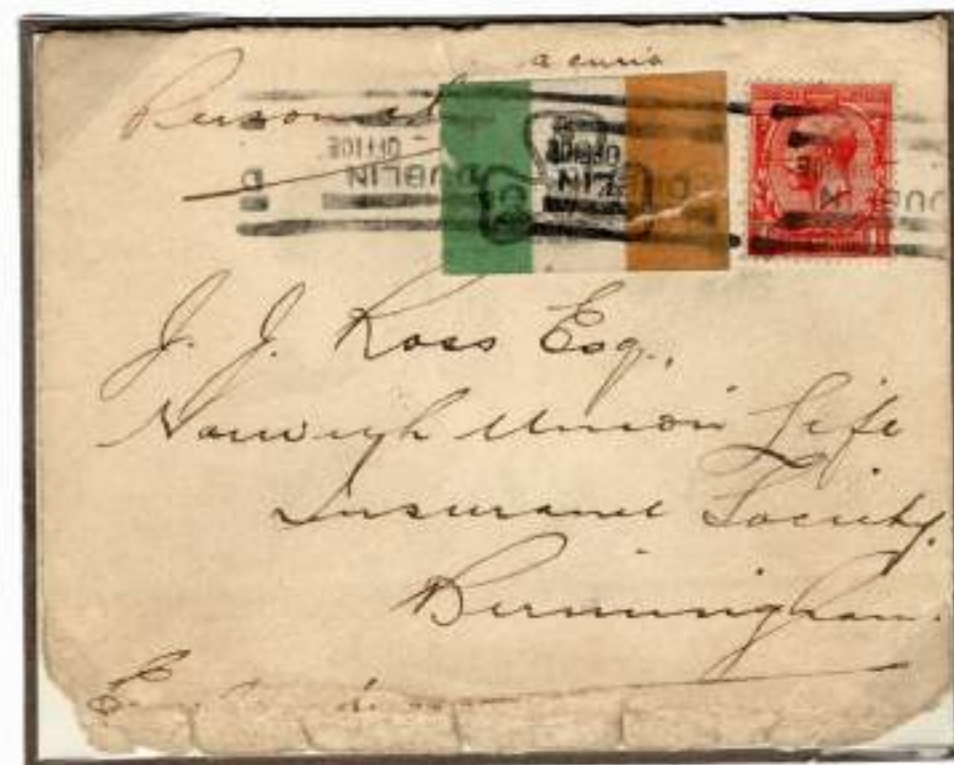 a curio
Personal
OFFICE
DUBLIN
D
OFFICE
J. J. Ross Esq.,
Norwich Union Life
Insurance Society,
Birmingham.